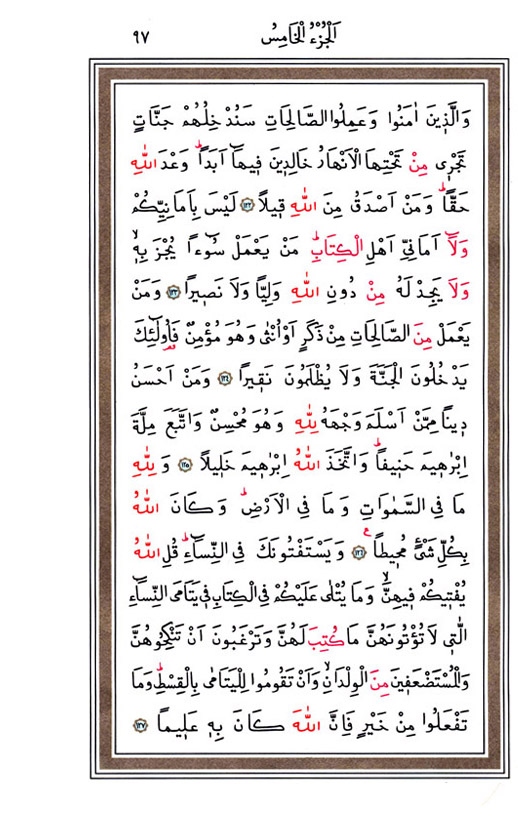 اَلْجُزْءُ الْخَامِسُ ٩٧
وَالَّذ۪ينَ اٰمَنُوا وَعَمِلُوا الصَّالِحَاتِ سَنُدْخِلُهُمْ جَنَّاتٍ
تَجْر۪ى مِنْ تَحْتِهَا الْاَنْهَارُ خَالِد۪ينَ ف۪يهَٓا اَبَدًاۜ وَعْدَ اللّٰهِ
حَقًّاۜ وَمَنْ اَصْدَقُ مِنَ اللّٰهِ ق۪يلًا ﴿١٢٢﴾ لَيْسَ بِاَمَانِيِّكُمْ
وَلَٓا اَمَانِيِّ اَهْلِ الْكِتَابِۜ مَنْ يَعْمَلْ سُٓوءًا يُجْزَ بِه۪ۙ
وَلَا يَجِدْ لَهُ مِنْ دُونِ اللّٰهِ وَلِيًّا وَلَا نَص۪يرًا ﴿١٢٣﴾ وَمَنْ
يَعْمَلْ مِنَ الصَّالِحَاتِ مِنْ ذَكَرٍ اَوْ اُنْثٰى وَهُوَ مُؤْمِنٌ فَاُو۬لٰٓئِكَ
يَدْخُلُونَ الْجَنَّةَ وَلَا يُظْلَمُونَ نَق۪يرًا ﴿١٢٤﴾ وَمَنْ اَحْسَنُ
د۪ينًا مِمَّنْ اَسْلَمَ وَجْهَهُ لِلّٰهِ وَهُوَ مُحْسِنٌ وَاتَّبَعَ مِلَّةَ
اِبْرٰه۪يمَ حَن۪يفًاۜ وَاتَّخَذَ اللّٰهُ اِبْرٰه۪يمَ خَل۪يلًا ﴿١٢٥﴾ وَلِلّٰهِ
مَا فِي السَّمٰوَاتِ وَمَا فِي الْاَرْضِۜ وَكَانَ اللّٰهُ
بِكُلِّ شَيْءٍ مُح۪يطًا۟ ﴿١٢٦﴾ وَيَسْتَفْتُونَكَ فِي النِّسَٓاءِۜ قُلِ اللّٰهُ
يُفْت۪يكُمْ ف۪يهِنَّۙ وَمَا يُتْلٰى عَلَيْكُمْ فِي الْكِتَابِ ف۪ي يَتَامَى النِّسَٓاءِ
الّٰت۪ي لَا تُؤْتُونَهُنَّ مَا كُتِبَ لَهُنَّ وَتَرْغَبُونَ اَنْ تَنْكِحُوهُنَّ
وَالْمُسْتَضْعَف۪ينَ مِنَ الْوِلْدَانِۙ وَاَنْ تَقُومُوا لِلْيَتَامٰى بِالْقِسْطِۜ وَمَا
تَفْعَلُوا مِنْ خَيْرٍ فَاِنَّ اللّٰهَ كَانَ بِه۪ عَل۪يمًا ﴿١٢٧﴾